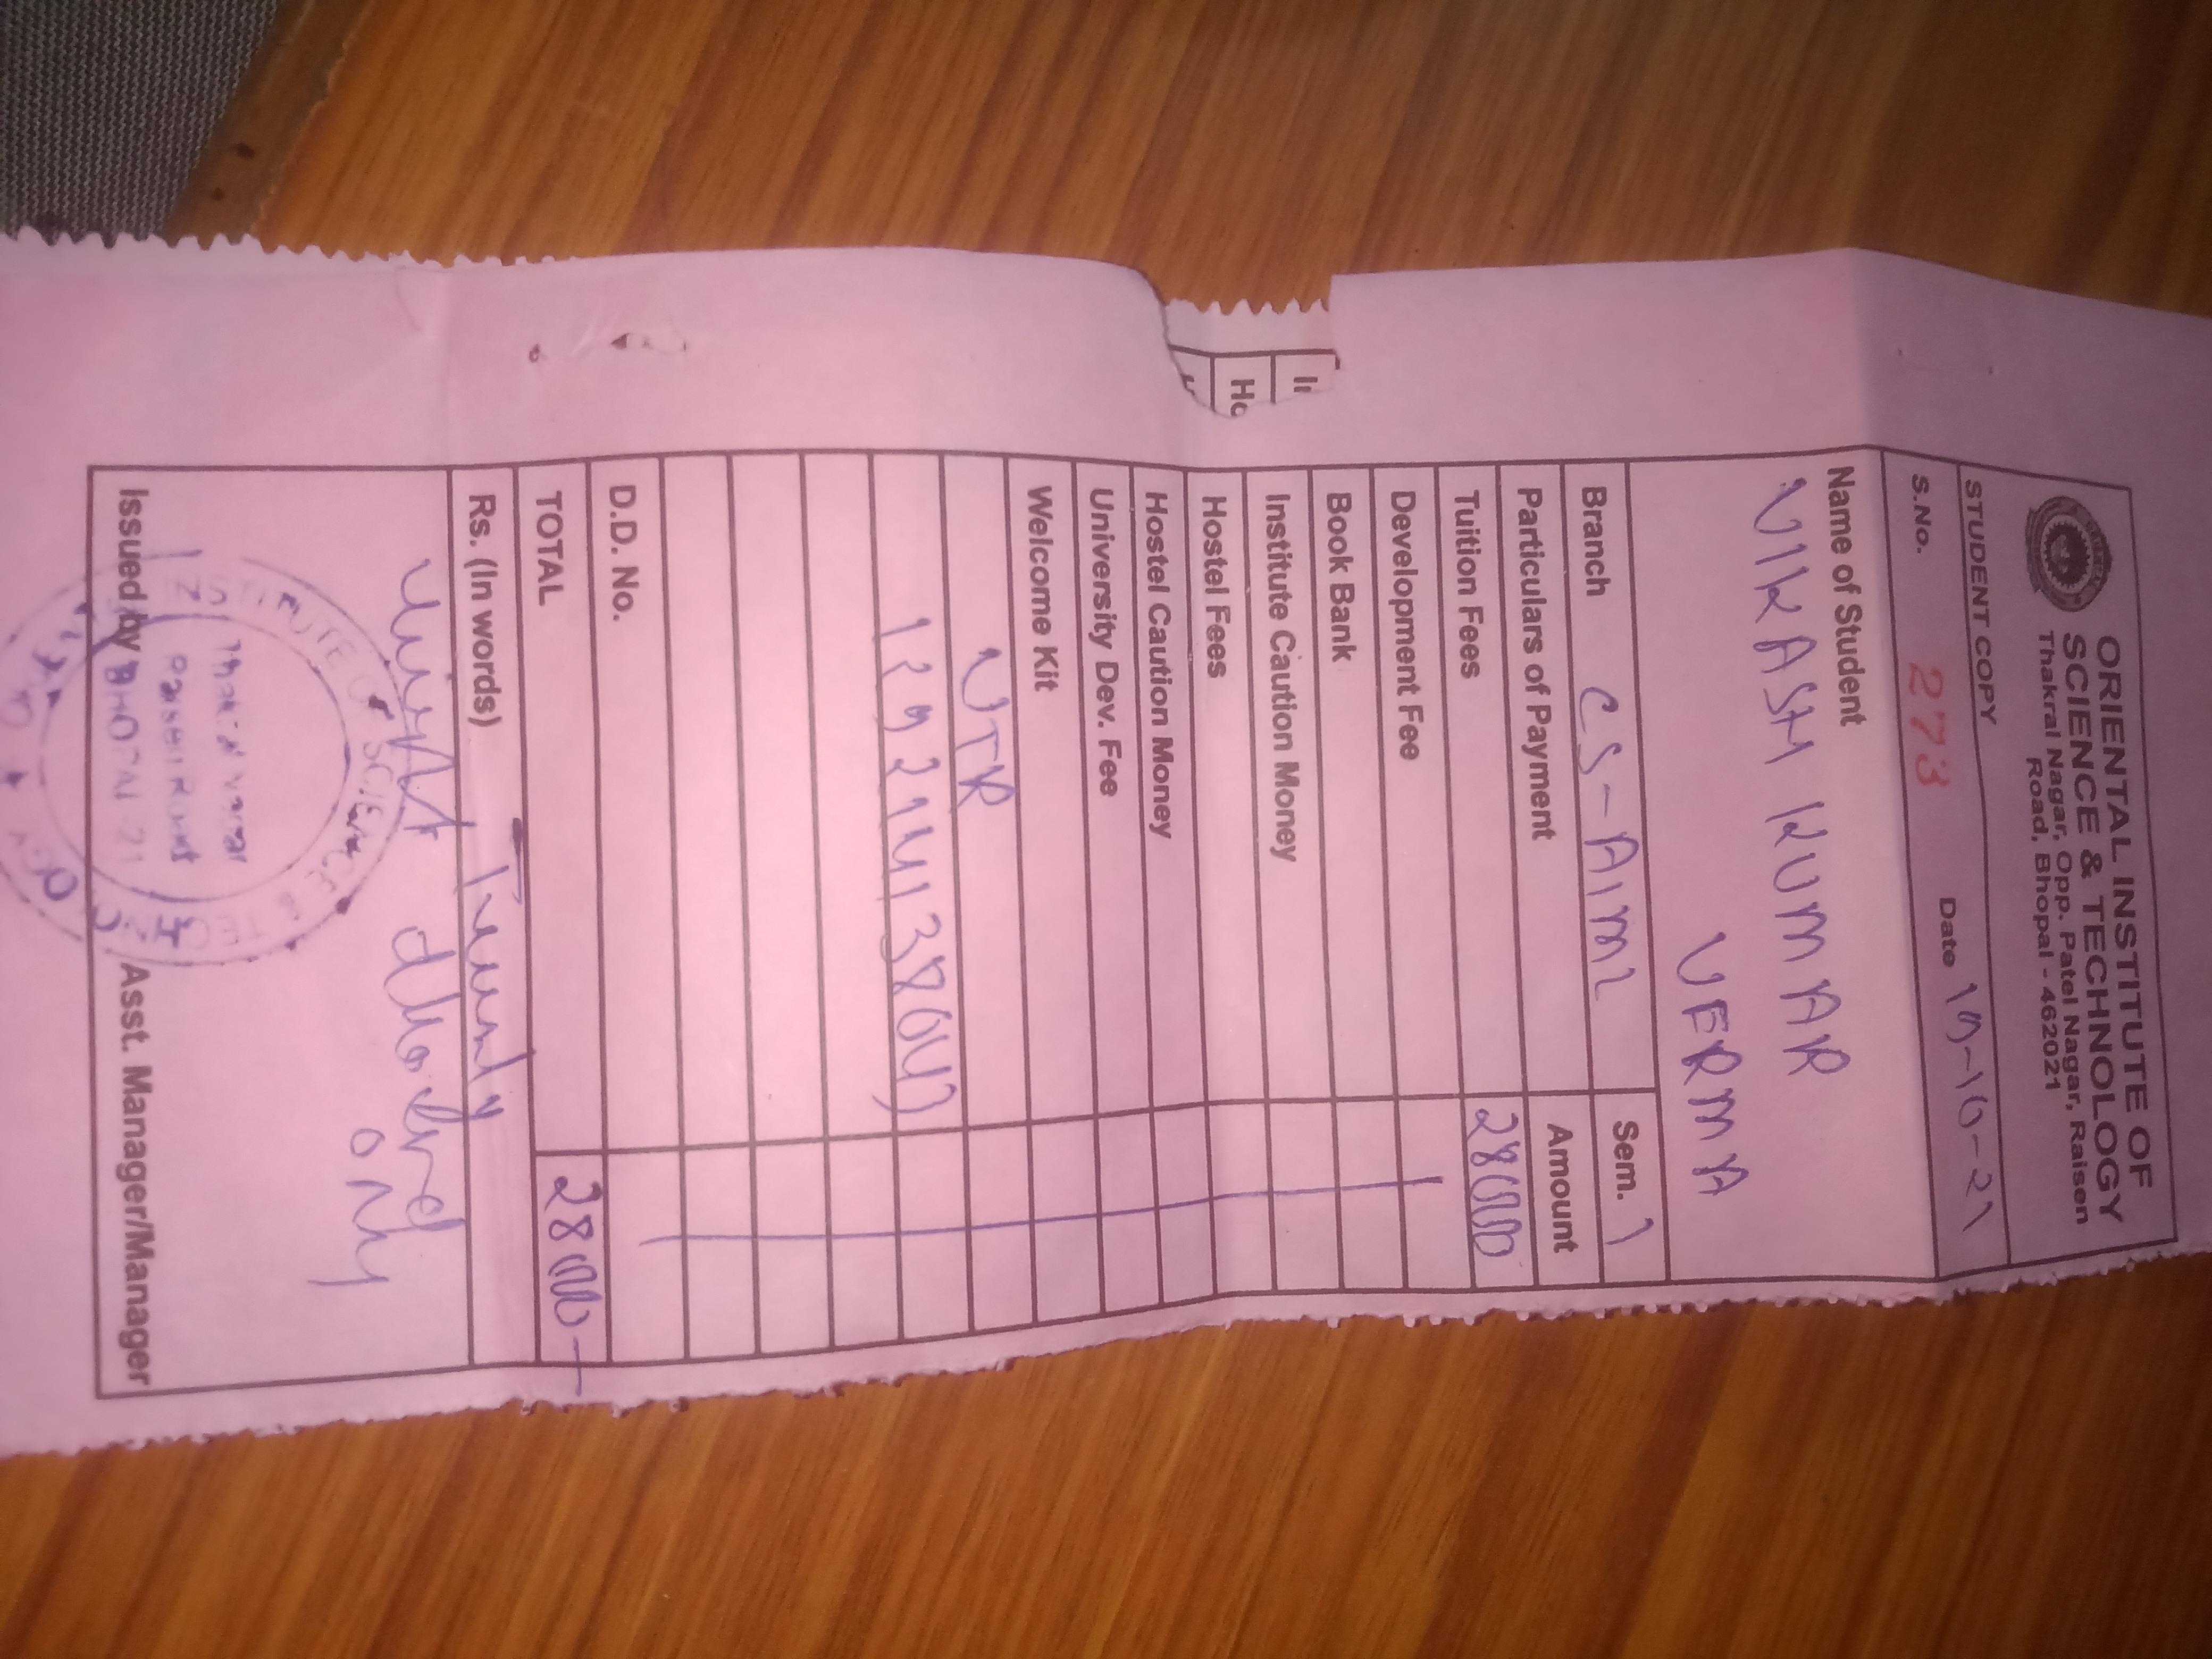 ORIENTAL INSTITUTE OF
SCIENCE & TECHNOLOGY
Thakral Nagar, Opp. Patel Nagar, Raisen
Road, Bhopal - 462021
STUDENT COPY
S.No. 2773 Date 19-10-21
Name of Student
VIKASH KUMAR
VERMA
Branch CS-AIML Sem. 1
Particulars of Payment Amount
Tuition Fees 28000
Development Fee
Book Bank
Institute Caution Money
Hostel Fees
Hostel Caution Money
University Dev. Fee
Welcome Kit
UTR
D.D. No.
TOTAL 28000-
Rs. (In words) Twenty
only
Issued by Asst. Manager/Manager
Ho